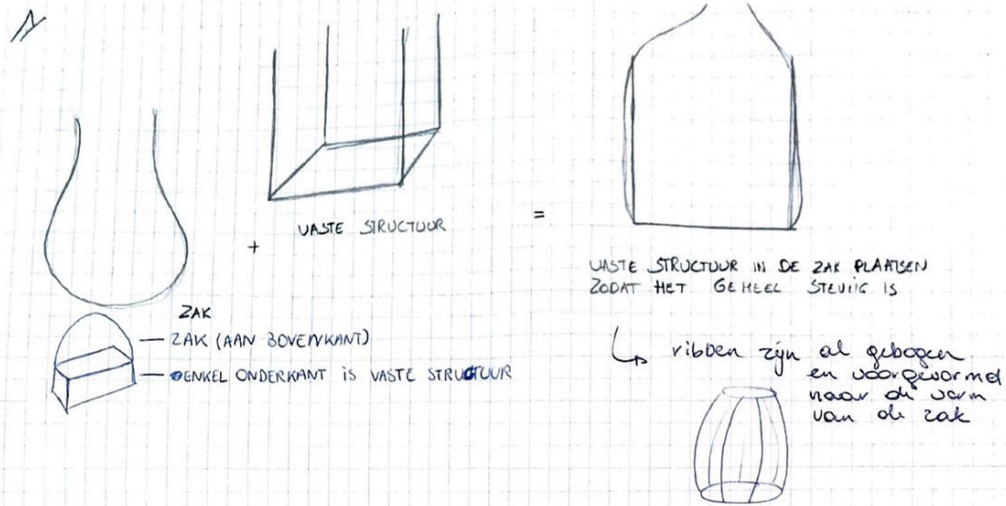 1
VASTE STRUCTUUR
+
=
VASTE STRUCTUUR IN DE ZAK PLAATSEN
ZODAT HET GEHEEL STEVIG IS
ZAK
ZAK (AAN BOVENKANT)
ENKEL ONDERKANT IS VASTE STRUCTUUR
↳ ribben zijn al gebogen
en voorgevormd
naar de vorm
van de zak